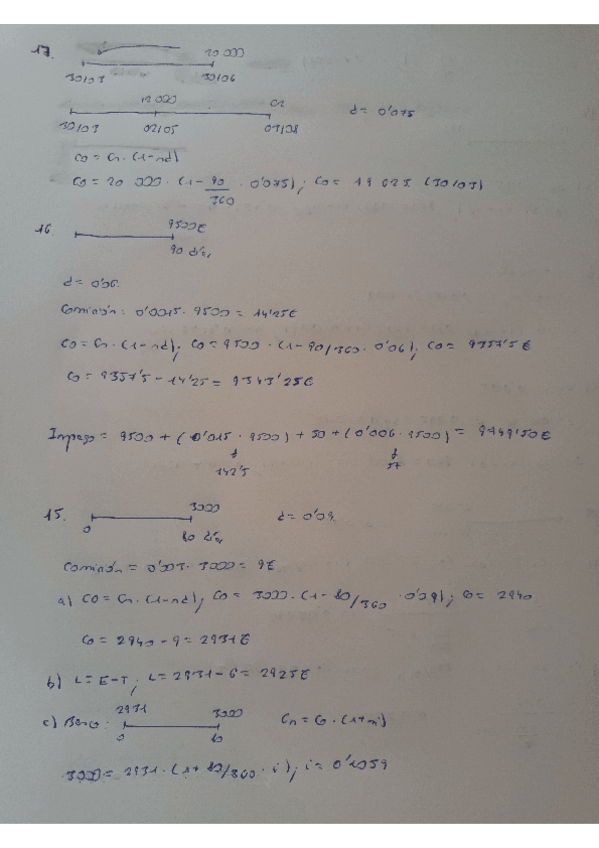 17. 20 000
30/03 30/06
12 000 Cn
30/03 02/05 03/08 d = 0'075
Co = Cn · (1-nd)
Co = 20 000 · (1 - 90/360 · 0'075); Co = 19 625 (30/03)
16. 9500€
90 días
d = 0'06
Comisión: 0'0015 · 9500 = 14'25€
Co = Cn · (1-nd); Co = 9500 · (1 - 90/360 · 0'06); Co = 9357'5 €
Co = 9357'5 - 14'25 = 9343'25€
Impago = 9500 + (0'015 · 9500) + 50 + (0'006 · 9500) = 9749'50€
142'5 57
15. 3000 d = 0'09
0 80 días
Comisión = 0'003 · 3000 = 9€
a) Co = Cn · (1-nd); Co = 3000 · (1 - 80/360 · 0'09); Co = 2940
Co = 2940 - 9 = 2931€
b) L = E-T; L = 2931 - 6 = 2925€
c) Banco: 2931 3000 Cn = Co · (1+ni)
0 80
3000 = 2931 · (1 + 80/360 · i); i = 0'1059